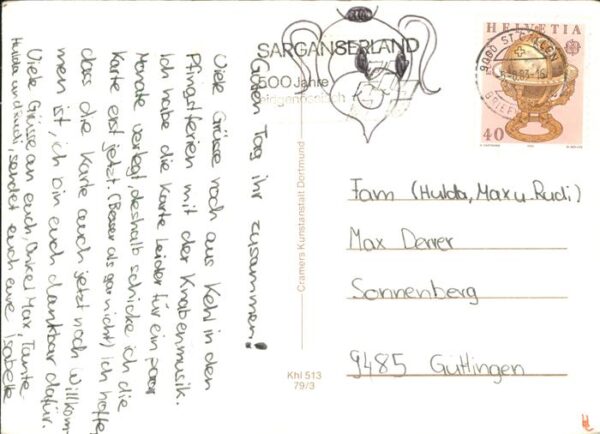 Guten Tag ihr zusammen!
Viele Grüsse noch aus Kehl in den
Pfingstferien mit der Knabenmusik.
Ich habe die Karte leider für ein paar
Monate verlegt, deshalb schicke ich die
Karte erst jetzt. (Besser als gar nicht) Ich hoffe,
das die Karte auch jetzt noch Willkom-
men ist, ich bin euch dankbar dafür.
Viele Grüsse an euch, Onkel Max, Tante
Hulda und Rudi, sendet euch eure Isabelle
SARGANSERLAND
500 Jahre
eidgenössisch
9000 ST. GALLEN
HELVETIA
40
Cramers Kunstanstalt Dortmund
Khl 513
79/3
Fam (Hulda, Max u. Rudi)
Max
Sonnenberg
9485 Güttingen